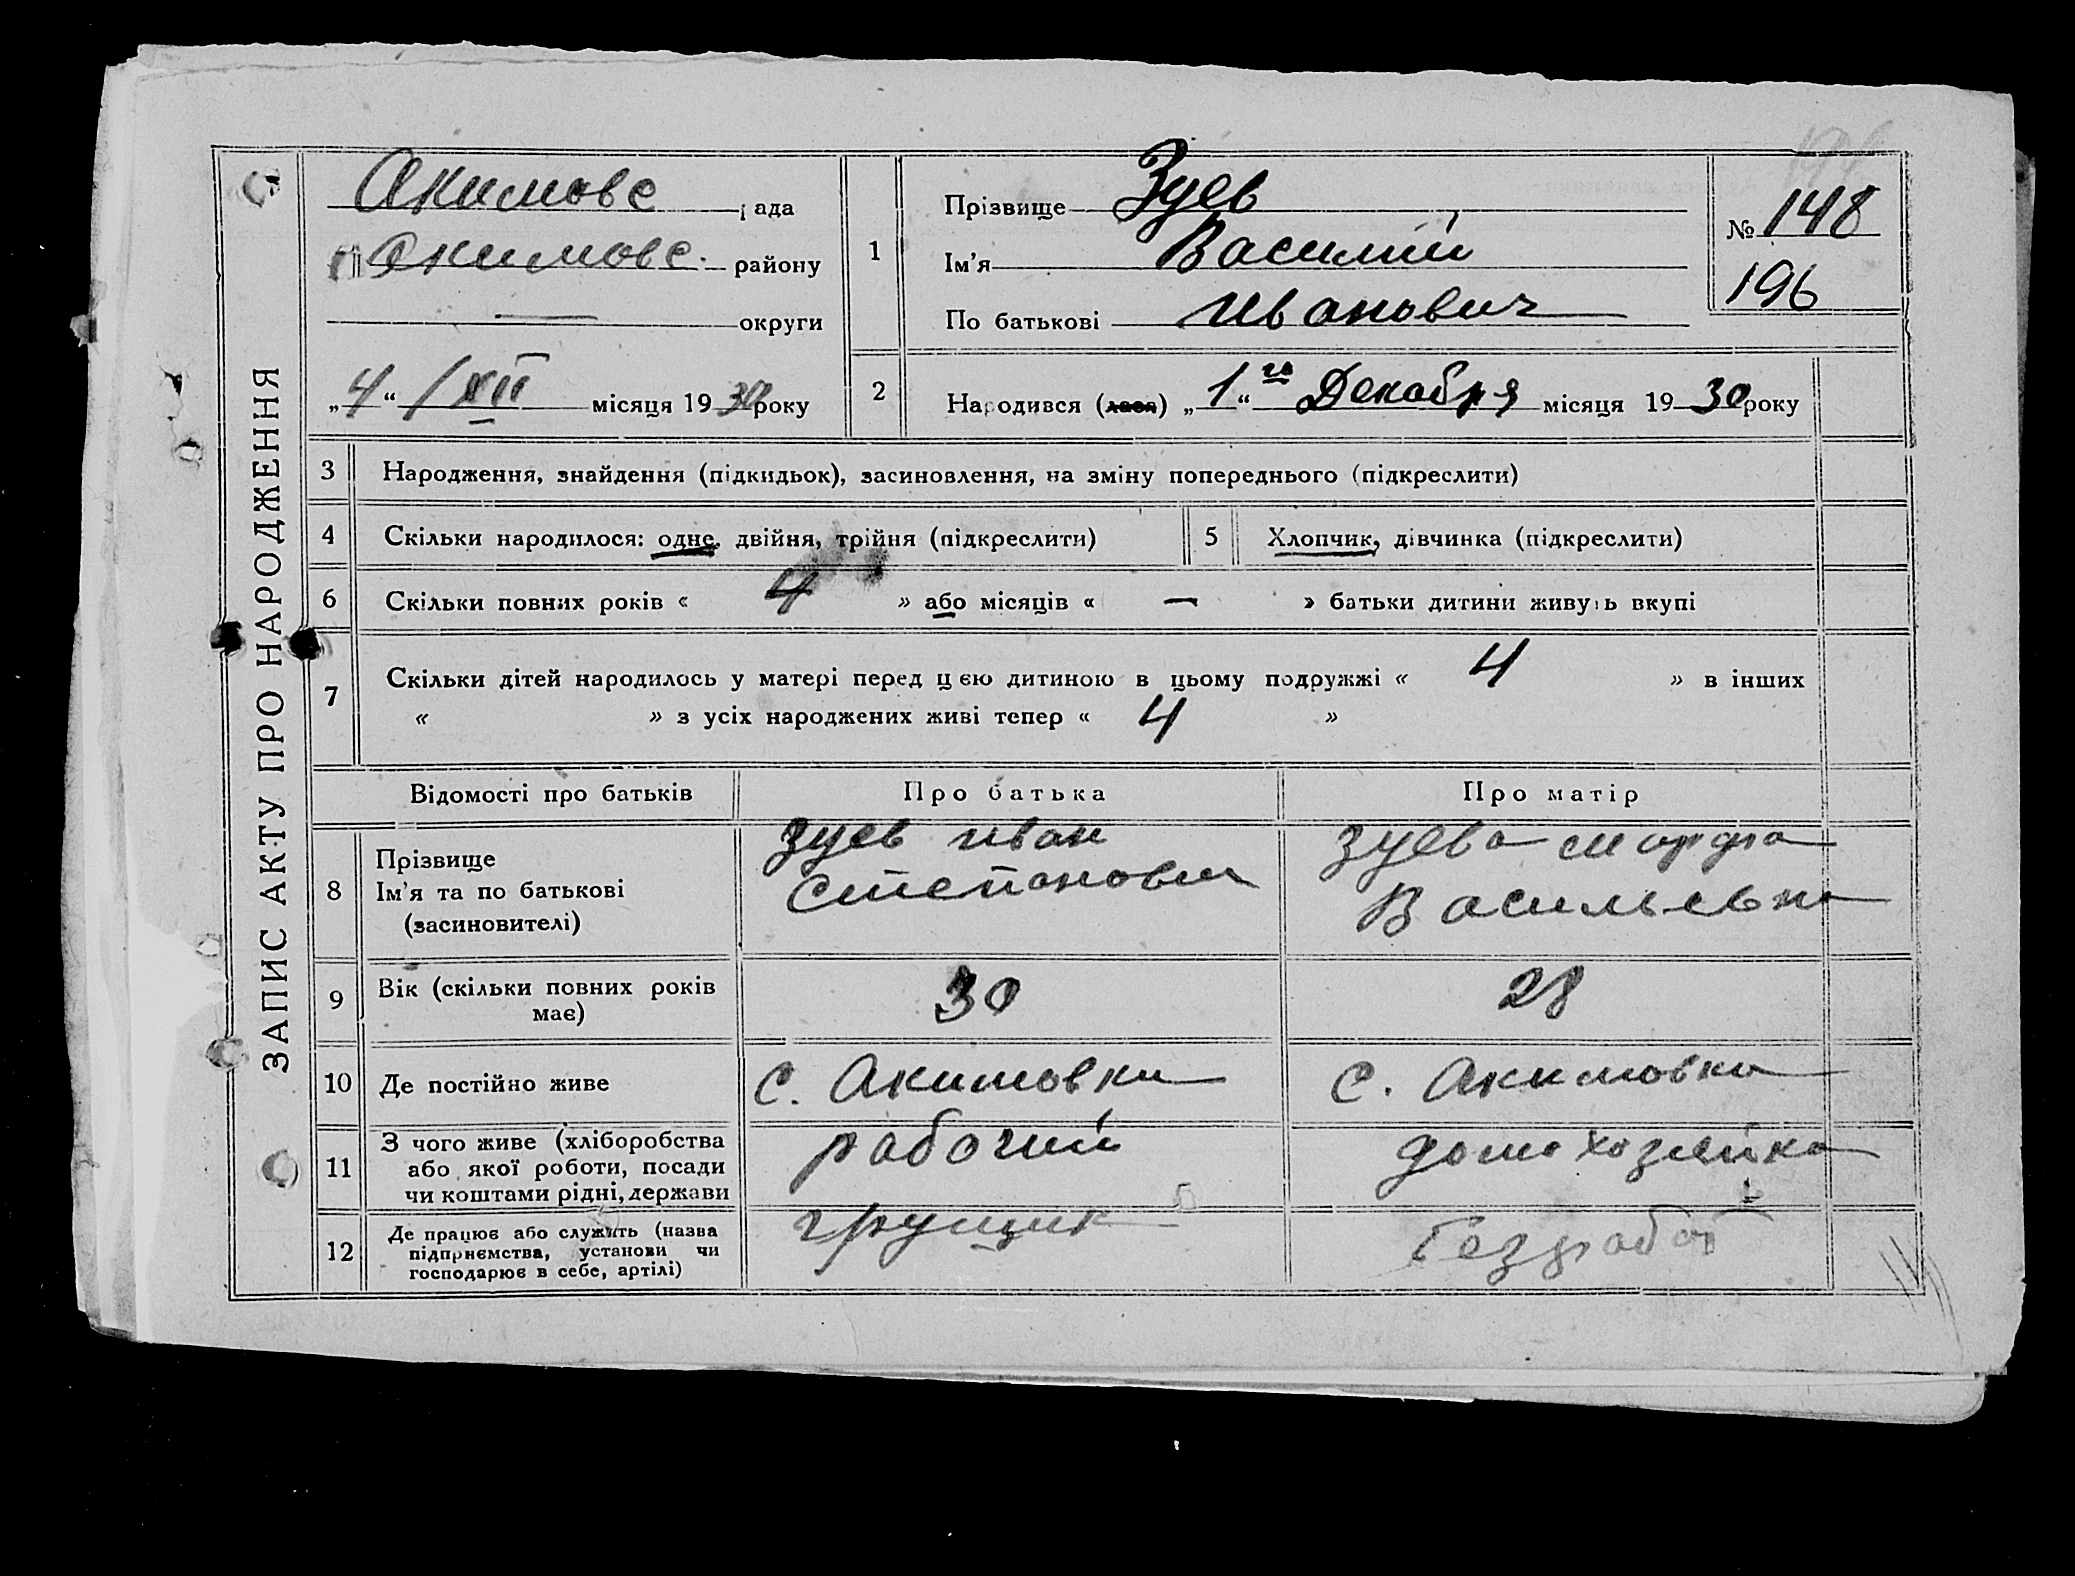 ЗАПИС АКТУ ПРО НАРОДЖЕННЯ
Акимовс рада
Акимовс. району
— округи
„4“ /XII місяця 1930 року
1
Прізвище Зуев
Ім'я Василий
По батькові Иванович
№ 148
196
2
Народився (лася) „1го“ Декабря місяця 1930 року
3 Народження, знайдення (підкидьок), засиновлення, на зміну попереднього (підкреслити)
4 Скільки народилося: одне, двійня, трійня (підкреслити)
5 Хлопчик, дівчинка (підкреслити)
6 Скільки повних років « 4 » або місяців « — » батьки дитини живуть вкупі
7 Скільки дітей народилось у матері перед цією дитиною в цьому подружжі « 4 » в інших
« » з усіх народжених живі тепер « 4 »
Відомості про батьків Про батька Про матір
8
Прізвище
Ім'я та по батькові
(засиновителі)
Зуев Иван
Степанович
Зуева Марфа
Васильевна
9 Вік (скільки повних років
має)
30
28
10 Де постійно живе с. Акимовка с. Акимовка
11
З чого живе (хліборобства
або якої роботи, посади
чи коштами рідні, держави
рабочий
домохозяйка
12
Де працює або служить (назва
підприємства, установи чи
господарює в себе, артілі)
грущик
безработ